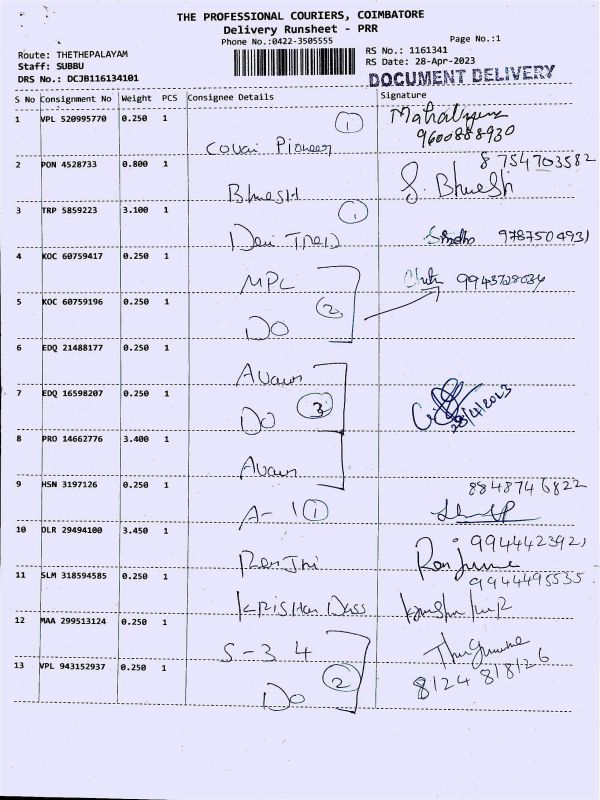 THE PROFESSIONAL COURIERS, COIMBATORE
Delivery Runsheet - PRR
Phone No.:0422-3505555 Page No.:1
Route: THETHEPALAYAM RS No.: 1161341
Staff: SUBBU RS Date: 28-Apr-2023
DRS No.: DCJB116134101 DOCUMENT DELIVERY
S No Consignment No Weight PCS Consignee Details Signature
1 VPL 520995770 0.250 1 1
Covai Pioneer 9600888930
2 PON 4528733 0.800 1 8754703582
Bhuesh S. Bhuesh
3 TRP 5859223 3.100 1 1
Devi Sindho 9787504931
4 KOC 60759417 0.250 1
MPL 9943728034
5 KOC 60759196 0.250 1 2
DO
6 EDQ 21488177 0.250 1
7 EDQ 16598207 0.250 1
DO 3 28/4/2023
8 PRO 14662776 3.400 1
9 HSN 3197126 0.250 1 8848746822
A-1 1
10 DLR 29494100 3.450 1 9944423921
Renjhi
11 SLM 318594585 0.250 1 9944495535
Krishan Dass
12 MAA 299513124 0.250 1
S-34
13 VPL 943152937 0.250 1 2 8124 818126
DO